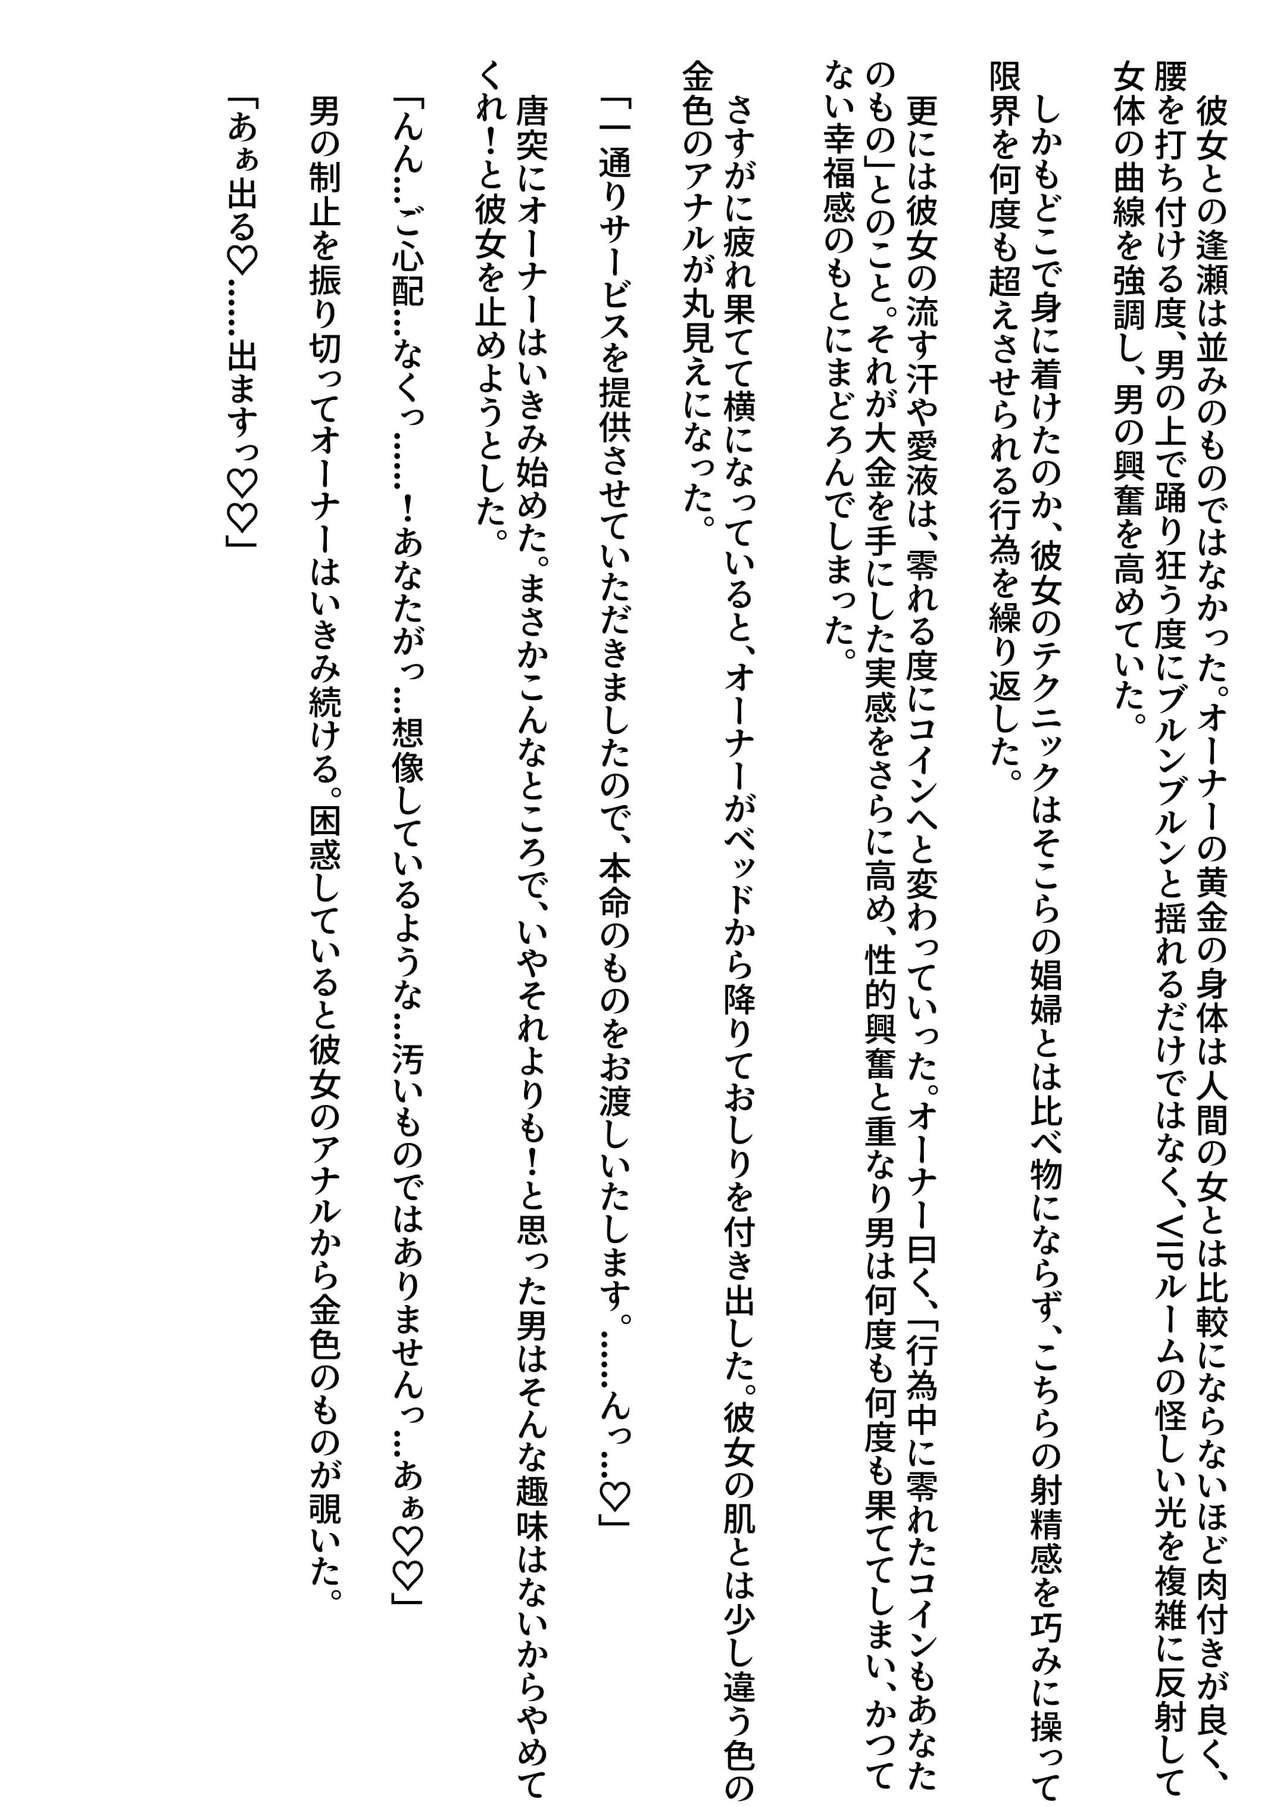 彼女との逢瀬は並みのものではなかった。オーナーの黄金の身体は人間の女とは比較にならないほど肉付きが良く、
腰を打ち付ける度、男の上で踊り狂う度にブルンブルンと揺れるだけではなく、VIPルームの怪しい光を複雑に反射して
女体の曲線を強調し、男の興奮を高めていた。
しかもどこで身に着けたのか、彼女のテクニックはそこらの娼婦とは比べ物にならず、こちらの射精感を巧みに操って
限界を何度も超えさせられる行為を繰り返した。
更には彼女の流す汗や愛液は、零れる度にコインへと変わっていった。オーナー曰く、「行為中に零れたコインもあなた
のもの」とのこと。それが大金を手にした実感をさらに高め、性的興奮と重なり男は何度も何度も果ててしまい、かつて
ない幸福感のもとにまどろんでしまった。
さすがに疲れ果てて横になっていると、オーナーがベッドから降りておしりを付き出した。彼女の肌とは少し違う色の
金色のアナルが丸見えになった。
「一通りサービスを提供させていただきましたので、本命のものをお渡しいたします。……んっ…♡」
唐突にオーナーはいきみ始めた。まさかこんなところで、いやそれよりも！と思った男はそんな趣味はないからやめて
くれ！と彼女を止めようとした。
「んん…ご心配…なくっ……！あなたがっ…想像しているような…汚いものではありませんっ…あぁ♡♡」
男の制止を振り切ってオーナーはいきみ続ける。困惑していると彼女のアナルから金色のものが覗いた。
「あぁ出る♡……出ますっ♡♡」